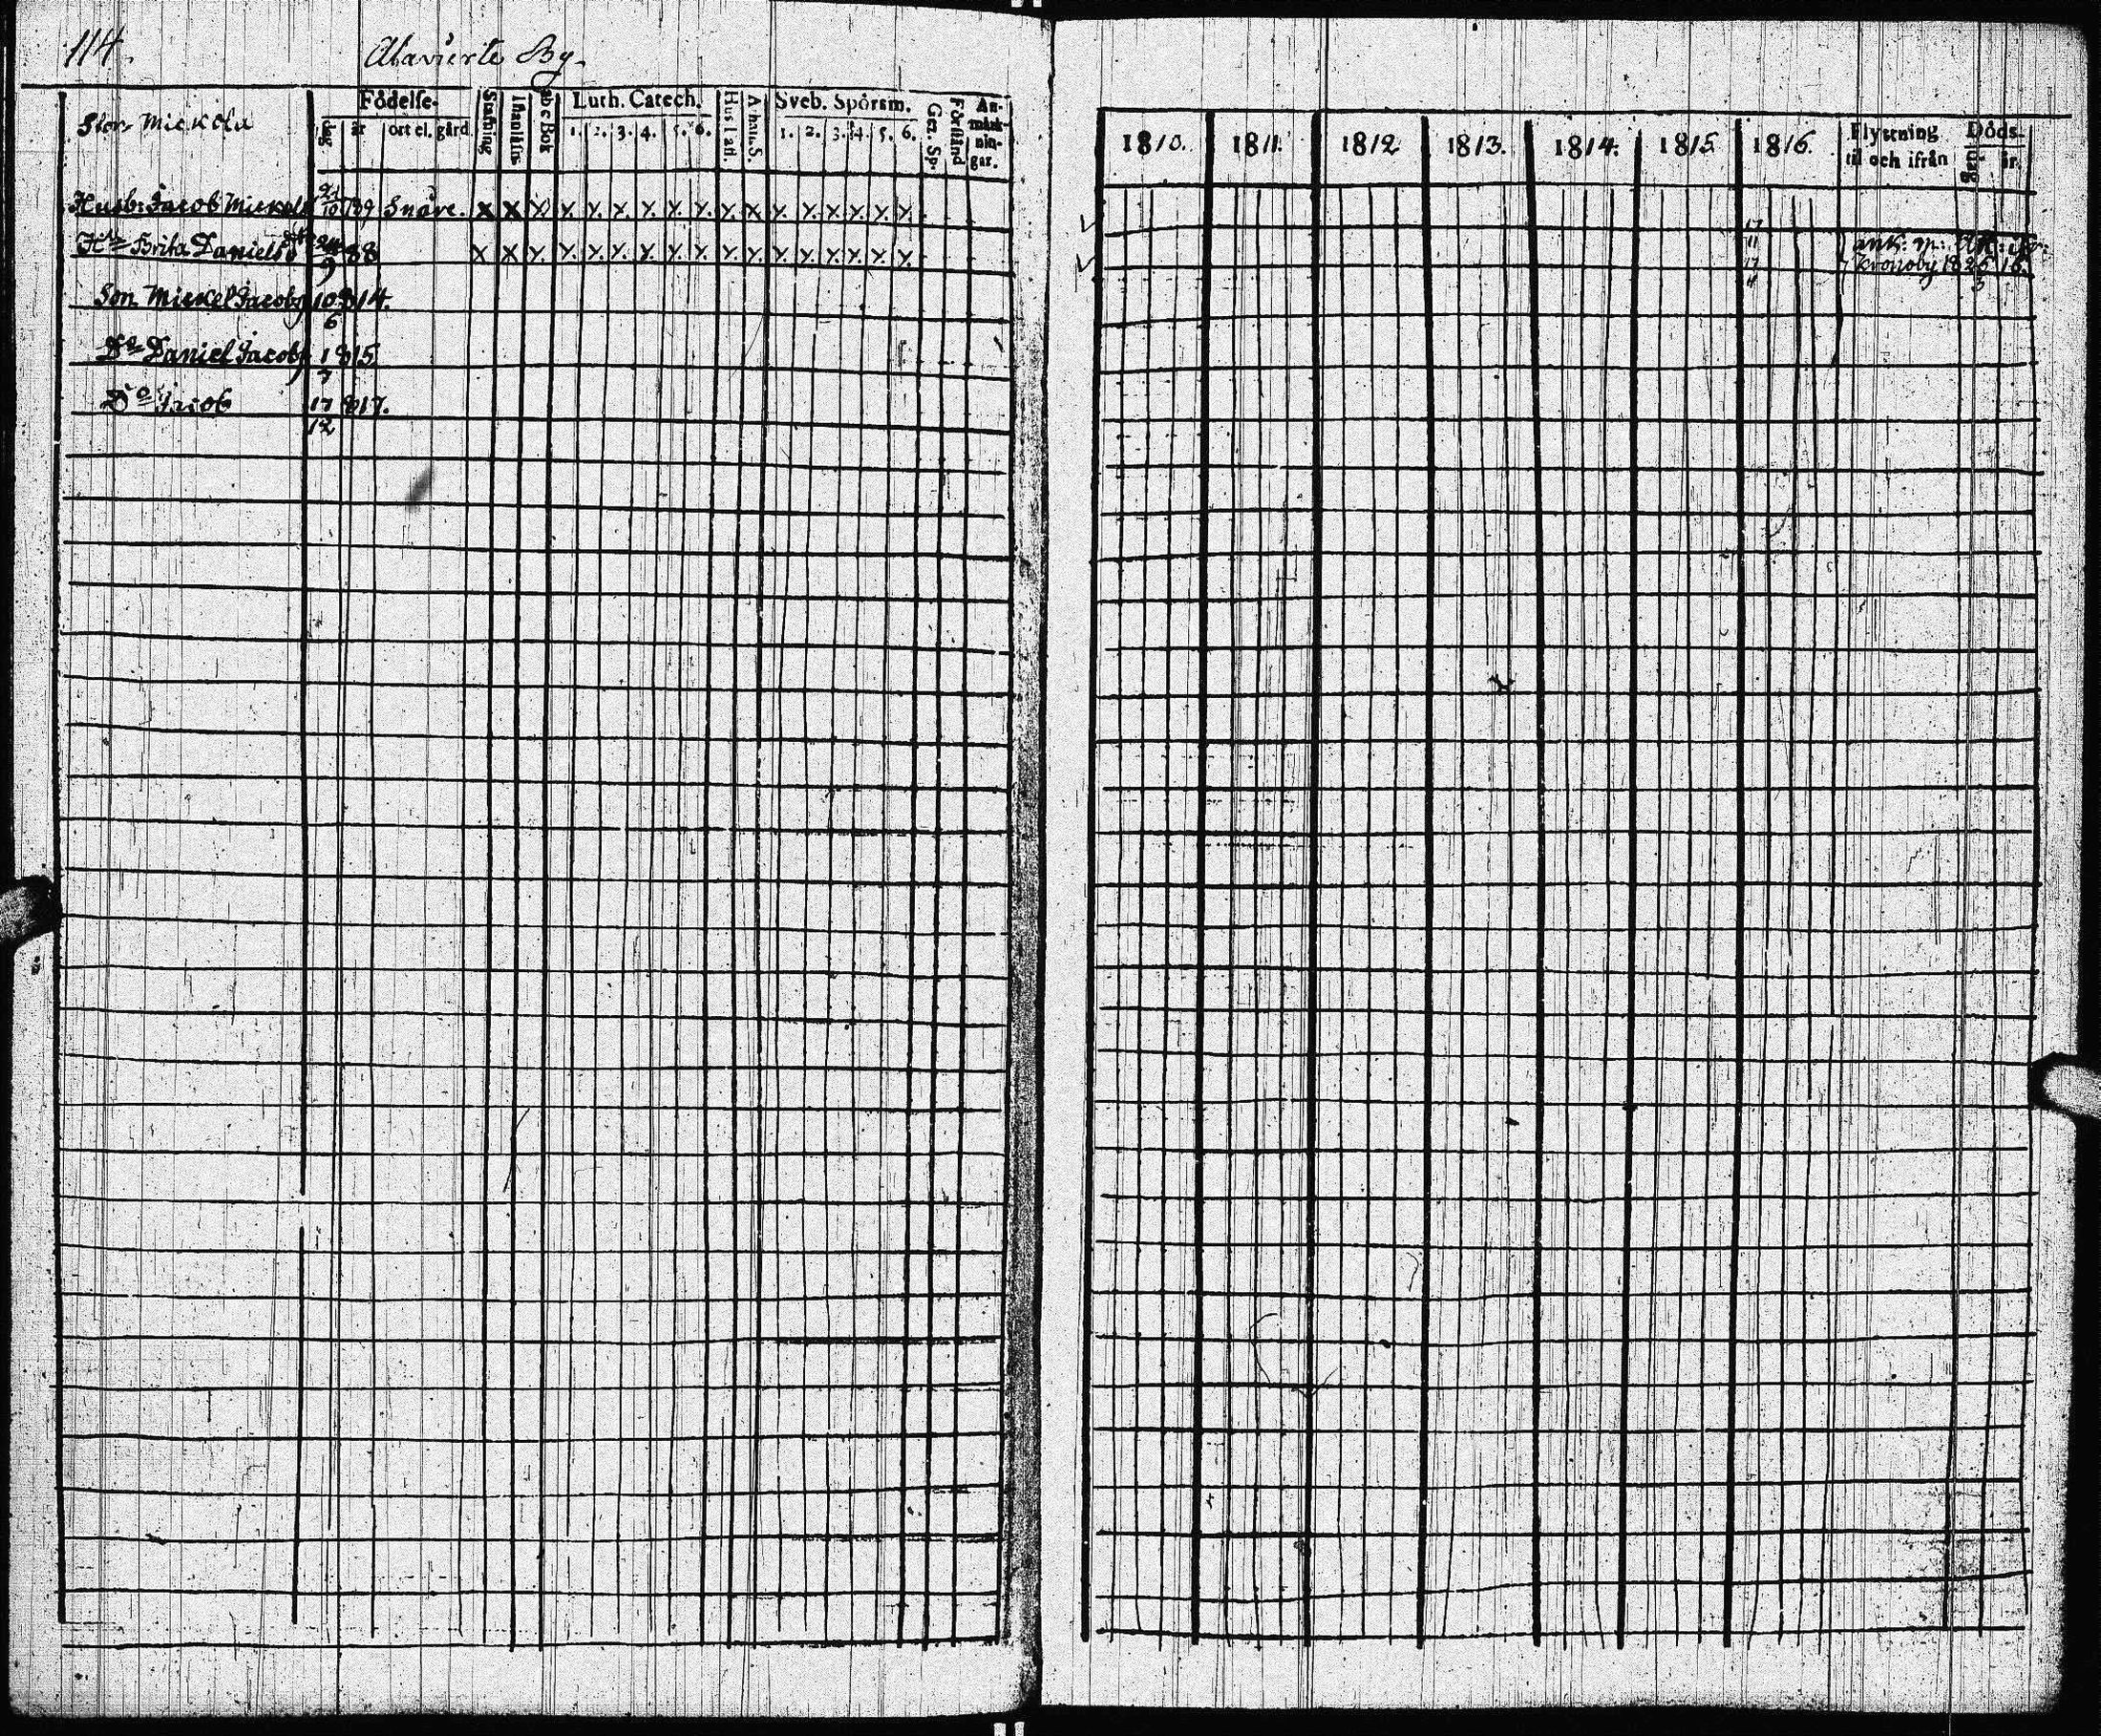 114.
Alavierte By.
Stor Mickola
Födelse-
dag
år
ort el. gård.
Stafning
Innanläsn
abc Bok
Luth. Catech.
1. 2. 3. 4. 5. 6.
Hus Tafl.
Athan. S.
Sveb. Spörsm.
1. 2. 3. 4. 5. 6.
Gez. Sp.
Förstånd
An-
märk-
nin-
gar.
Husb: Jacob Mickels 10 789 Snåre. x x x x x x x x x x x x x x x x x
H:u Brita Daniels 24 88 x x x x x x x x x x x x x x x x x
9
Son Mickel Jacobs 10 814.
6
D:o Daniel Jacobs 1 815.
D:o Jacob 17 817.
12
1810. 1811. 1812 1813. 1814. 1815 1816.
Flyttning
til och ifrån
Döds-
dag
år.
17
11
17
11
Kronoby 1825
3